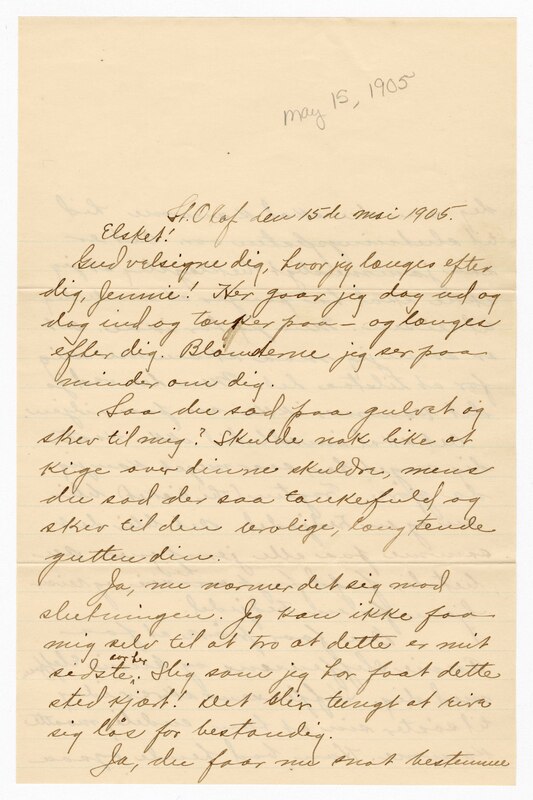 May 15, 1905
St. Olaf den 15de mai 1905.
Elsket!
Gud velsigne dig, hvor jeg længes efter
dig, Jennie! Her gaar jeg dag ud og
dag ind og tænker paa — og længes
efter dig. Blomderne jeg ser paa
minder om dig.
Saa du sad paa gulvet og
skrev til mig? Skulde nok like at
kige over dinne skuldre, mens
du sad der saa tankefuld og
skrev til den urolige, længtende
gutten din.
Ja, nu nærmer det sig mod
slutningen. Jeg kan ikke faa
mig selv til at tro at dette er mit
sidste aar her. Slig som jeg har faat dette
sted kjært! Det blir tungt at rive
sig løs for bestandig.
Ja, du faar nu snart bestemme